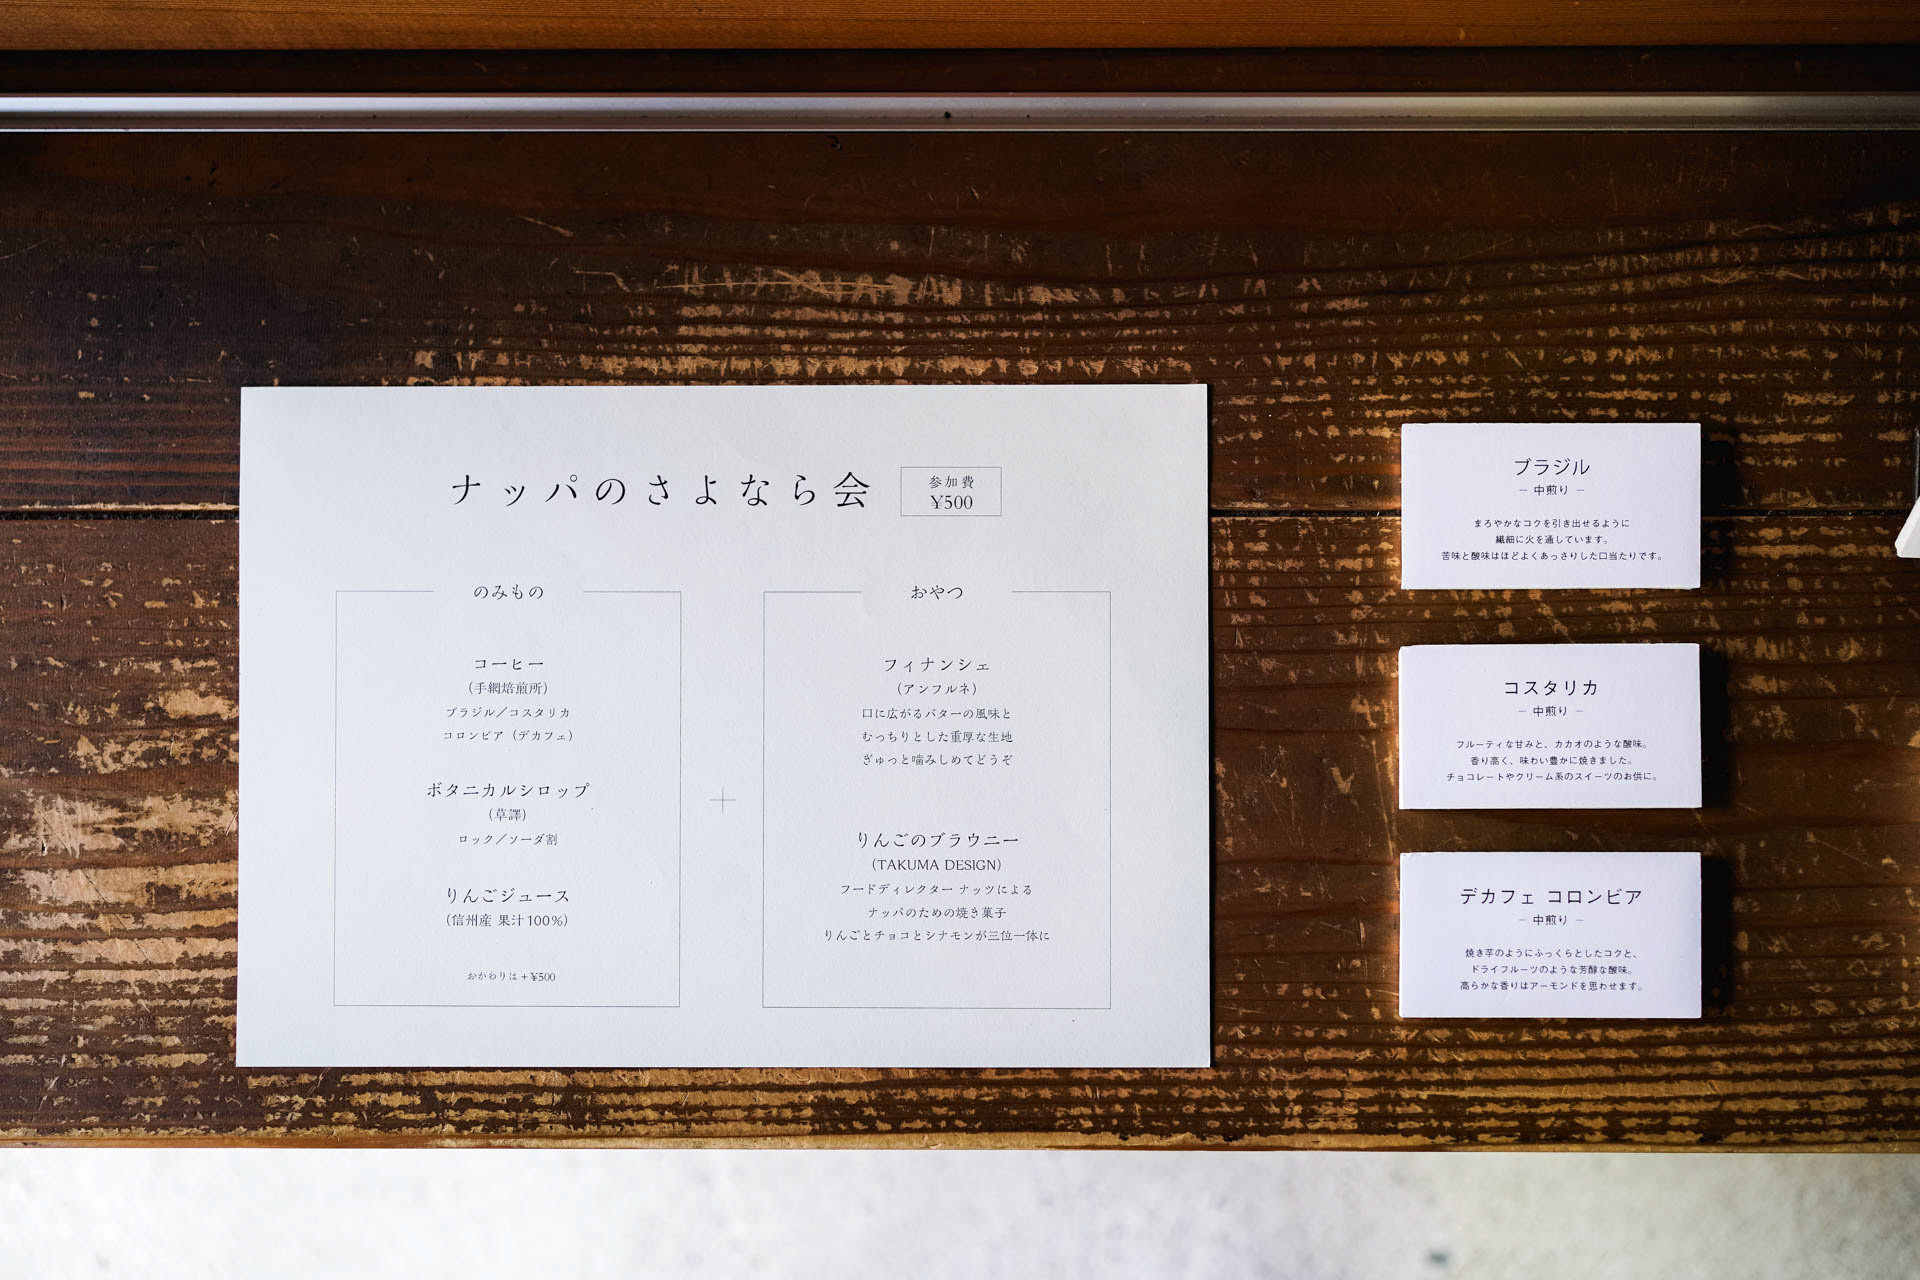 ナッパのさよなら会
参加費
¥500
のみもの
コーヒー
（手網焙煎所）
ブラジル／コスタリカ
コロンビア（デカフェ）
ボタニカルシロップ
（草譯）
ロック／ソーダ割
りんごジュース
（信州産 果汁100%）
おかわりは＋¥500
＋
おやつ
フィナンシェ
（アンフルネ）
口に広がるバターの風味と
むっちりとした重厚な生地
ぎゅっと噛みしめてどうぞ
りんごのブラウニー
（TAKUMA DESIGN）
フードディレクター ナッツによる
ナッパのための焼き菓子
りんごとチョコとシナモンが三位一体に
ブラジル
― 中煎り ―
まろやかなコクを引き出せるように
繊細に火を通しています。
苦味と酸味はほどよくあっさりした口当たりです。
コスタリカ
― 中煎り ―
フルーティな甘みと、カカオのような酸味。
香り高く、味わい豊かに焼きました。
チョコレートやクリーム系のスイーツのお供に。
デカフェ コロンビア
― 中煎り ―
焼き芋のようにふっくらとしたコクと、
ドライフルーツのような芳醇な酸味。
高らかな香りはアーモンドを思わせます。